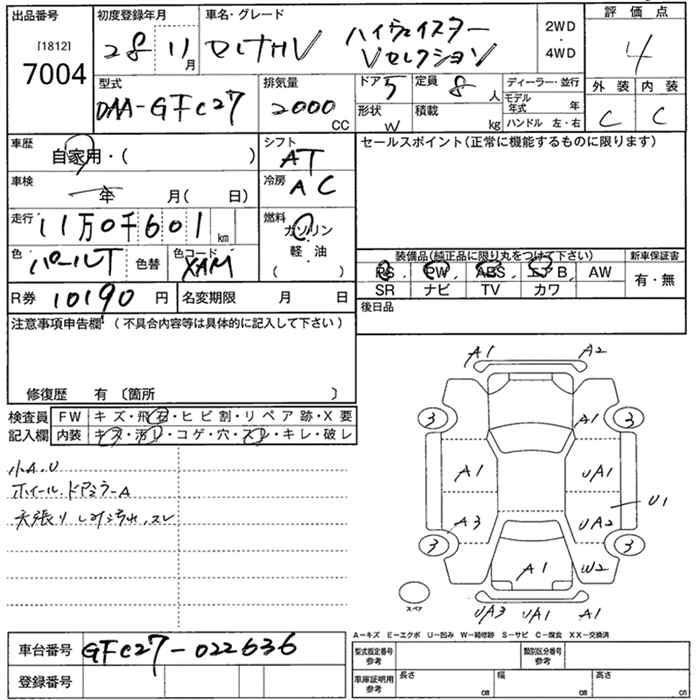 出品番号 初度登録年月 車名・グレード 評価点
[1812] 28年11月 セレナHV ハイウェイスター 2WD・4WD 4
7004 Vセレクション
型式 排気量 ドア 5 定員 8人 ディーラー・並行 外装 内装
DAA-GFC27 2000CC 形状 W 積載 kg モデル年式 年 C C
ハンドル 左・右
車歴 自家用・( ) シフト AT セールスポイント(正常に機能するものに限ります)
車検 年 月( 日) 冷房 AC
走行 11万0千601km 燃料 ガソリン
軽・油
( )
色 パールT 色替 色コード XAM 装備品(純正品に限り丸をつけて下さい) 新車保証書
PS PW ABS エアB AW 有・無
R券 10190円 名変期限 月 日 SR ナビ TV カワ
注意事項申告欄(不具合内容等は具体的に記入して下さい) 後日品
修復歴 有〔箇所 〕
検査員 FW キズ・飛石・ヒビ割・リペア跡・X要
記入欄 内装 キズ・汚レ・コゲ・穴・スレ・キレ・破レ
小A.U
ホイール.ドアミラーA
天張りしみ汚れ.スレ
A1 A2
3 3
A1
A1 UA1
U1
A3 UA2
3 3
A1 W2
スペア
UA3 UA1 A1
A-キズ E-エクボ U-凹み W-補修跡 S-サビ C-腐食 XX-交換済
車台番号 GFC27-022636 型式指定番号 参考 類別区分番号 参考
登録番号 車庫証明用 参考 長さ cm 幅 cm 高さ cm